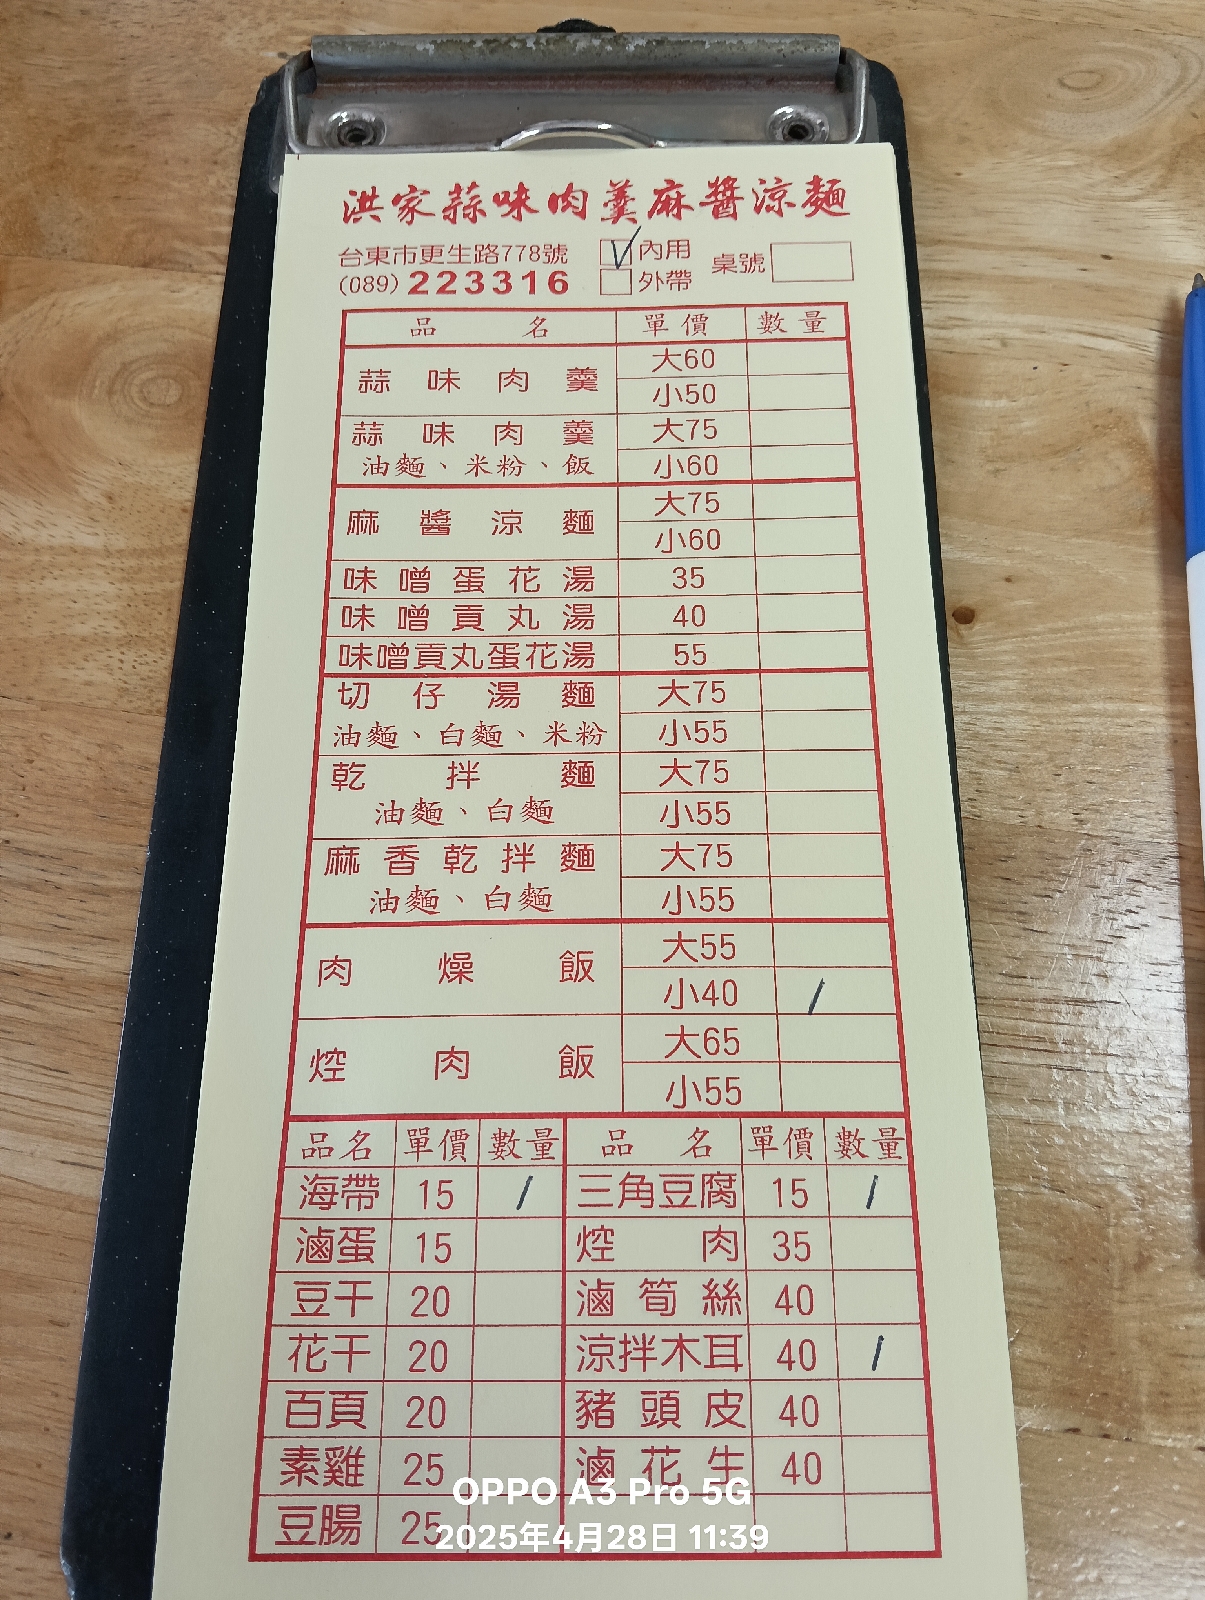 洪家蒜味肉羹麻醬涼麵
台東市更生路778號 V 內用 桌號
(089) 223316 外帶
品名 單價 數量
蒜味肉羹 大60
小50
蒜味肉羹 大75
油麵、米粉、飯 小60
麻醬涼麵 大75
小60
味噌蛋花湯 35
味噌貢丸湯 40
味噌貢丸蛋花湯 55
切仔湯麵 大75
油麵、白麵、米粉 小55
乾拌麵 大75
油麵、白麵 小55
麻香乾拌麵 大75
油麵、白麵 小55
肉燥飯 大55
小40 /
焢肉飯 大65
小55
品名 單價 數量 品名 單價 數量
海帶 15 / 三角豆腐 15 /
滷蛋 15 焢肉 35
豆干 20 滷筍絲 40
花干 20 涼拌木耳 40 /
百頁 20 豬頭皮 40
素雞 25 滷花生 40
豆腸 25
OPPO A3 Pro 5G
2025年4月28日 11:39